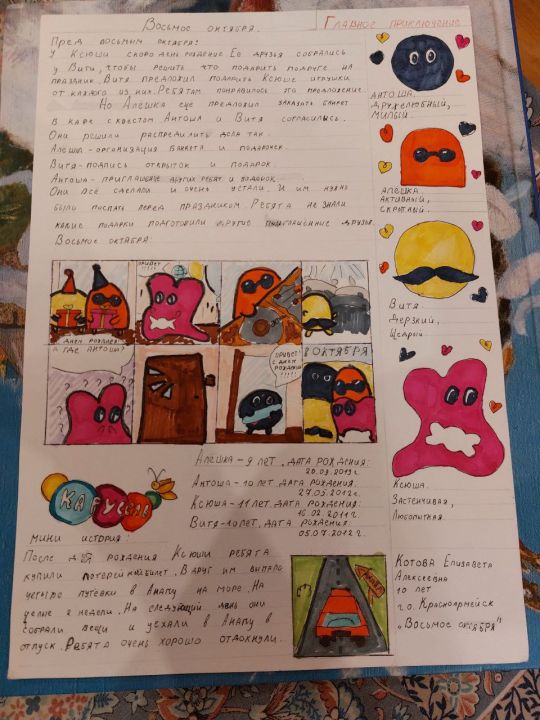 Восьмое октября.
Главное приключение
Пред восьмым октября:
У Ксюши скоро день рождение. Ее друзья собрались
у Вити, чтобы решить что подарить подруге на
праздник. Витя предложил подарить Ксюше игрушки
от каждого из них. Ребятам понравилось это предложение.
Но Алёшка еще предложил заказать банкет
в кафе с квестом. Антоша и Витя согласились.
Они решили распределить дела так.
Алёшка - организация банкета и подарок.
Витя - подпись открыток и подарок.
Антоша - приглашение других ребят и подарок.
Они всё сделали и очень устали. И им нужно
было поспать перед праздником. Ребята не знали
какие подарки подготовили другие приглашённые друзья.
Восьмое октября:
Привет
!!!!!
С днем рождения
А где Антоша?
? ? ? ? ?
Привет!
С днем
рождения
!!!!!
8 октября
Алёшка - 9 лет, дата рождения:
Антоша - 10 лет дата рождения:
Ксюша - 11 лет дата рождения:
16.02.2011г.
Витя - 10 лет, дата рождения:
05.07.2012г.
Карусель
Мини история:
После дня рождения Ксюши ребята
купили лотерейный билет. Вдруг им выпало
четыре путевки в Анапу на море. На
целые 2 недели. На следующий день они
собрали вещи и уехали в Анапу в
отпуск. Ребята очень хорошо отдохнули.
Антоша.
Дружелюбный,
милый.
Алёшка.
Активный,
скрытный.
Витя.
Дерзкий,
щедрый.
Ксюша.
Застенчивая,
любопытная.
Котова Елизавета
Алексеевна
10 лет
г.о. Красноармейск
"Восьмое октября"